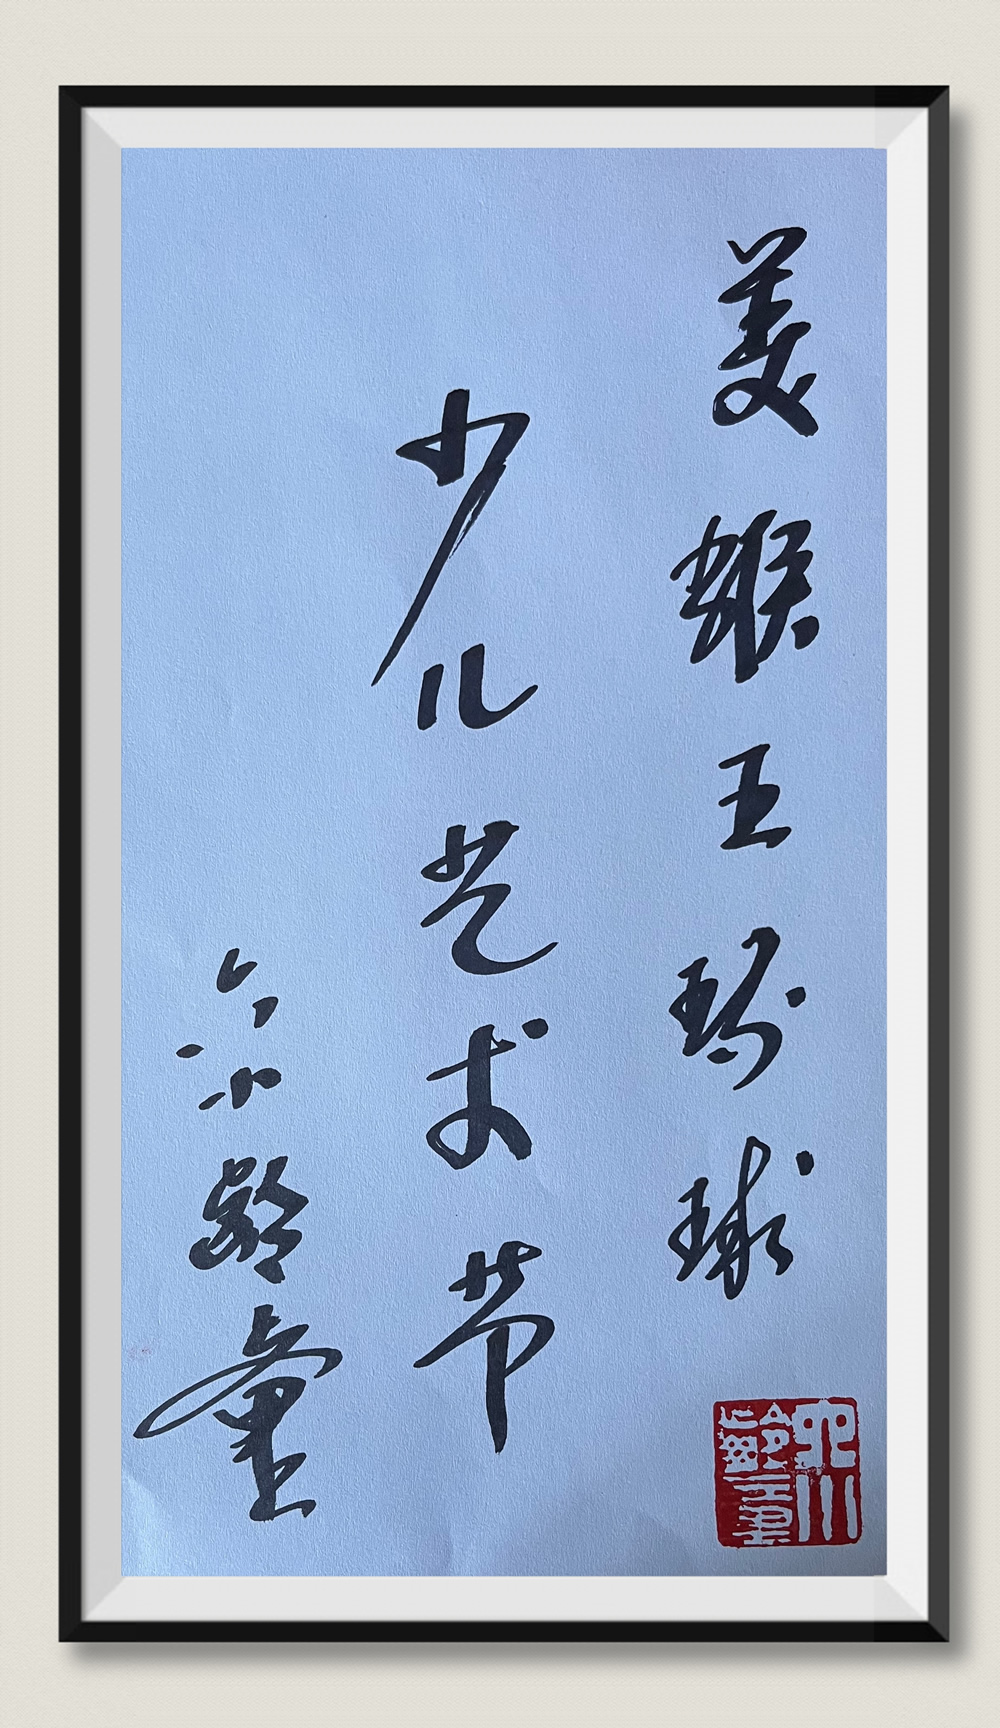 美猴王环球
少儿艺术节
六小齡童
六小齡童